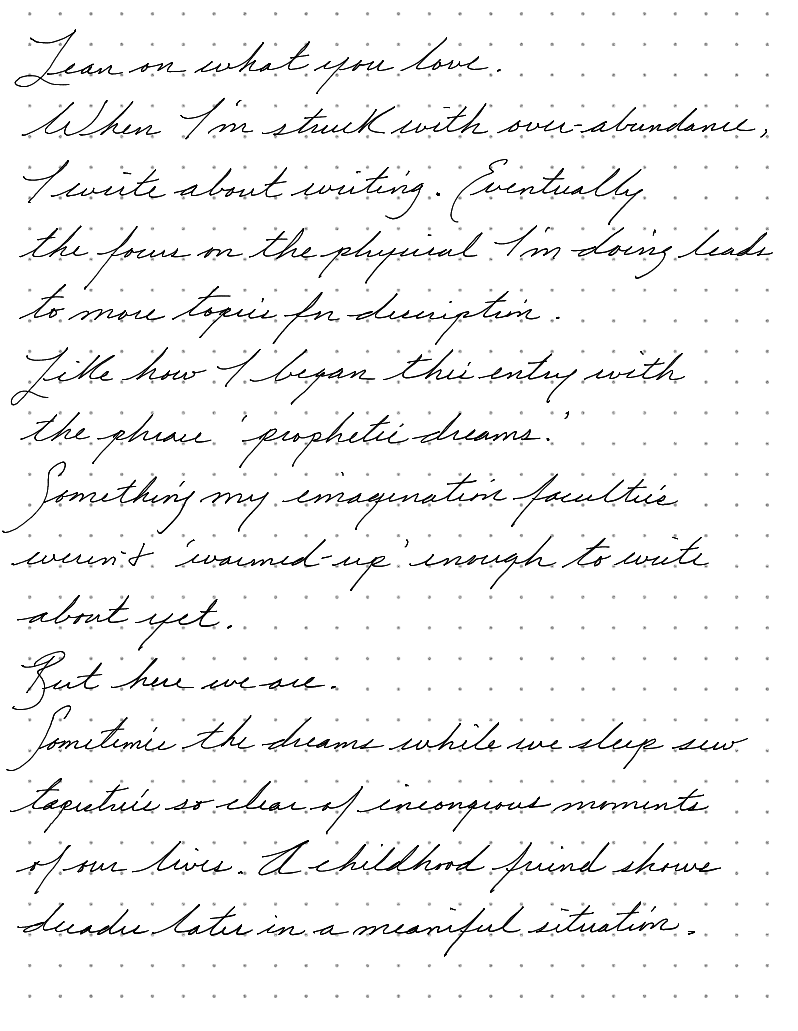 Lean on what you love.
When I'm struck with over-abundance,
I write about writing. Eventually
the focus on the physical I'm doing leads
to more topics for description.
Like how I began this entry with
the phrase 'prophetic dreams.'
Something my imagination faculties
weren't 'warmed-up' enough to write
about yet.
But here we are.
Sometimes the dreams while we sleep sew
tapestries so clear of incongrous moments
of our lives. A childhood friend shows
decades later in a meaniful situation.